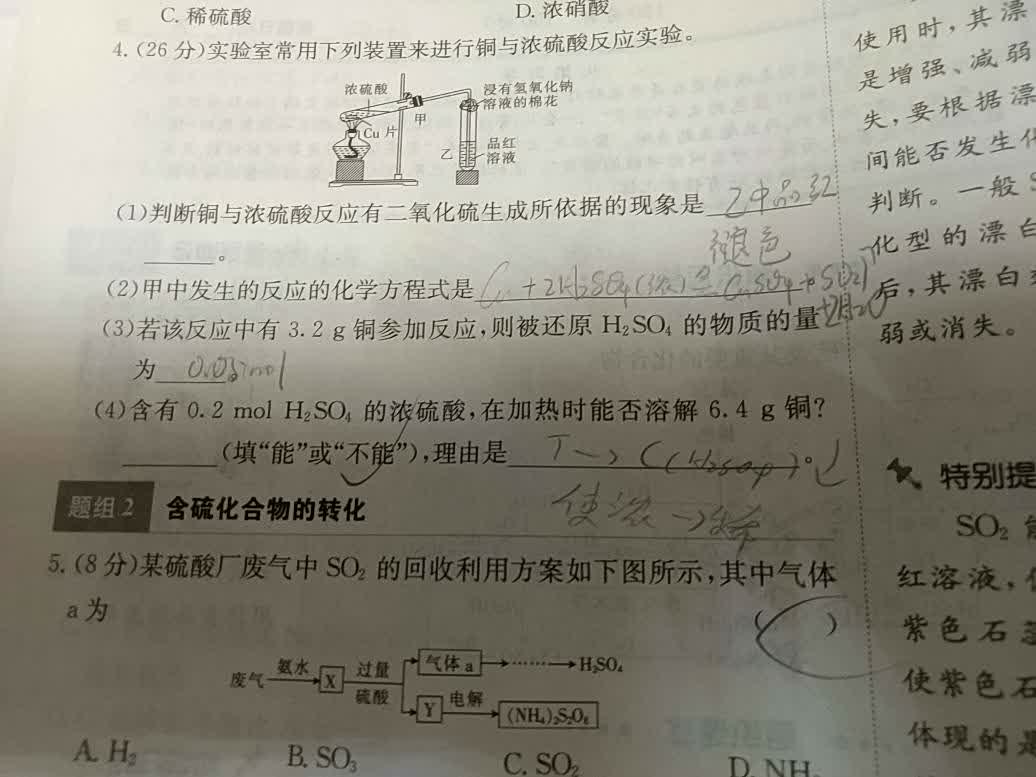 C. 稀硫酸 D. 浓硝酸
4. (26 分)实验室常用下列装置来进行铜与浓硫酸反应实验。
浓硫酸
浸有氢氧化钠
溶液的棉花
甲
Cu 片
乙
品红
溶液
(1)判断铜与浓硫酸反应有二氧化硫生成所依据的现象是 乙中品红
褪色
。
(2)甲中发生的反应的化学方程式是 Cu+2H₂SO₄(浓)≜CuSO₄+SO₂↑
+2H₂O
(3)若该反应中有 3.2 g 铜参加反应,则被还原 H₂SO₄ 的物质的量
为 0.05mol
(4)含有 0.2 mol H₂SO₄ 的浓硫酸,在加热时能否溶解 6.4 g 铜?
(填“能”或“不能”),理由是 (H₂SO₄)。
使浓→稀
题组 2 含硫化合物的转化
5. (8 分)某硫酸厂废气中 SO₂ 的回收利用方案如下图所示,其中气体
a 为 ( )
废气 氨水 X 过量 硫酸 气体 a H₂SO₄
Y 电解 (NH₄)₂S₂O₈
A. H₂ B. SO₃ C. SO₂ D. NH
使用时,其漂
是增强、减弱
失,要根据漂
间能否发生
判断。一般
化型的漂白
后,其漂白
弱或消失。
特别提
SO₂
红溶液,
紫色石
使紫色石
体现的是